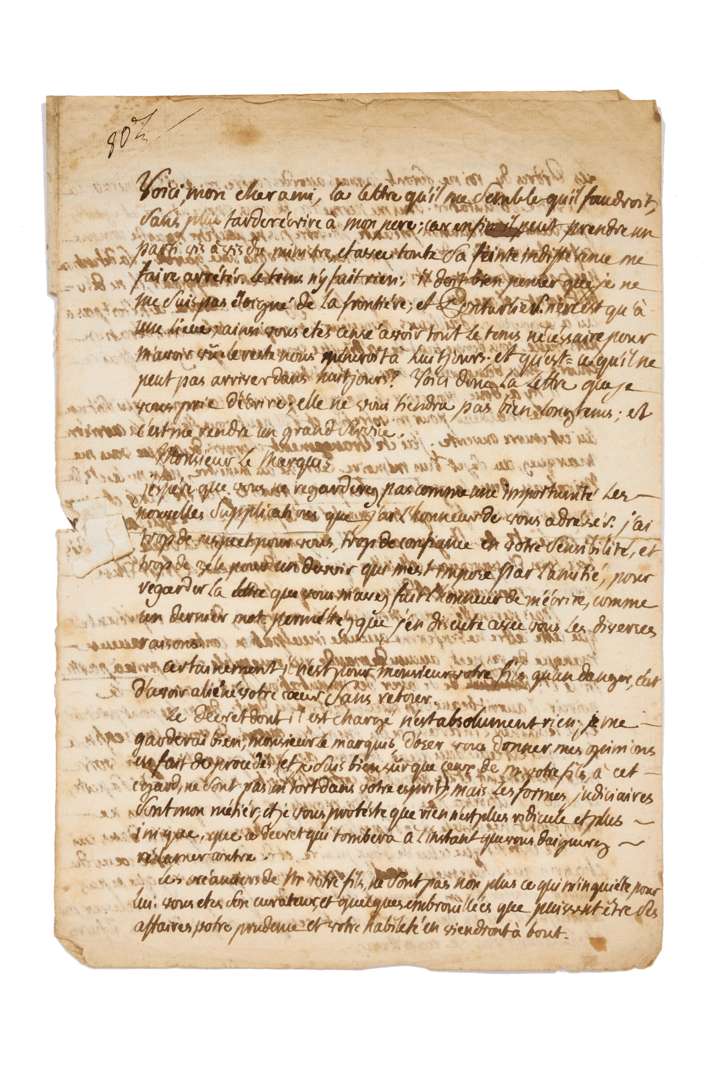 80
Voici, mon cher ami, la lettre qu'il me semble qu'il faudroit,
sans plus tarder écrire à mon pere; car enfin il peut prendre un
parti vis à vis du ministre, et avec toute sa feinte indifférence me
faire arrêter. le tems n'y fait rien; il doit bien penser que je ne
me suis pas éloigné de la frontière; et Pontarlier n'en est qu'à
une lieue; ainsi vous etes censé avoir tout le tems nécessaire pour
m'avoir vû. le reste nous à huit jours. et qu'est-ce qu'il ne
peut pas arriver dans huit jours? Voici donc la lettre que je
vous prie d'écrire; elle ne vous tiendra pas bien longtems; et
c'est me rendre un grand service.
Monsieur le Marquis
j'espère que vous ne regarderez pas comme une importunité les
nouvelles supplications que j'ai l'honneur de vous adresser. j'ai
trop de respect pour vous, trop de confiance en votre sensibilité, et
trop de zele pour un devoir qui m'est imposé par l'amitié, pour
regarder la lettre que vous m'avez fait l'honneur de m'écrire, comme
un dernier mot. permettez que j'en discute avec vous les diverses
raisons.
Certainement il n'est pour monsieur votre fils qu'un danger, c'est
d'avoir aliéné votre cœur sans retour.
Le décret dont il est chargé n'est absolument rien; je me
garderai bien, monsieur le marquis, d'oser vous donner mes opinions
en fait de procédés, et je suis bien sûr que ceux de Mr votre fils, à cet
égard, ne sont pas un tort dans votre esprit; mais les formes judiciaires
sont mon métier, et je vous proteste que rien n'est plus ridicule et plus
inique, que ce décret qui tombera à l'instant que vous daignerez
réclamer contre.
Les créanciers de Mr votre fils, ne sont pas non plus ce qui m'inquiéte pour
lui. vous etes son curateur, et quelques embrouillées que puissent être ses
affaires, votre prudence et votre habileté en viendront à bout.